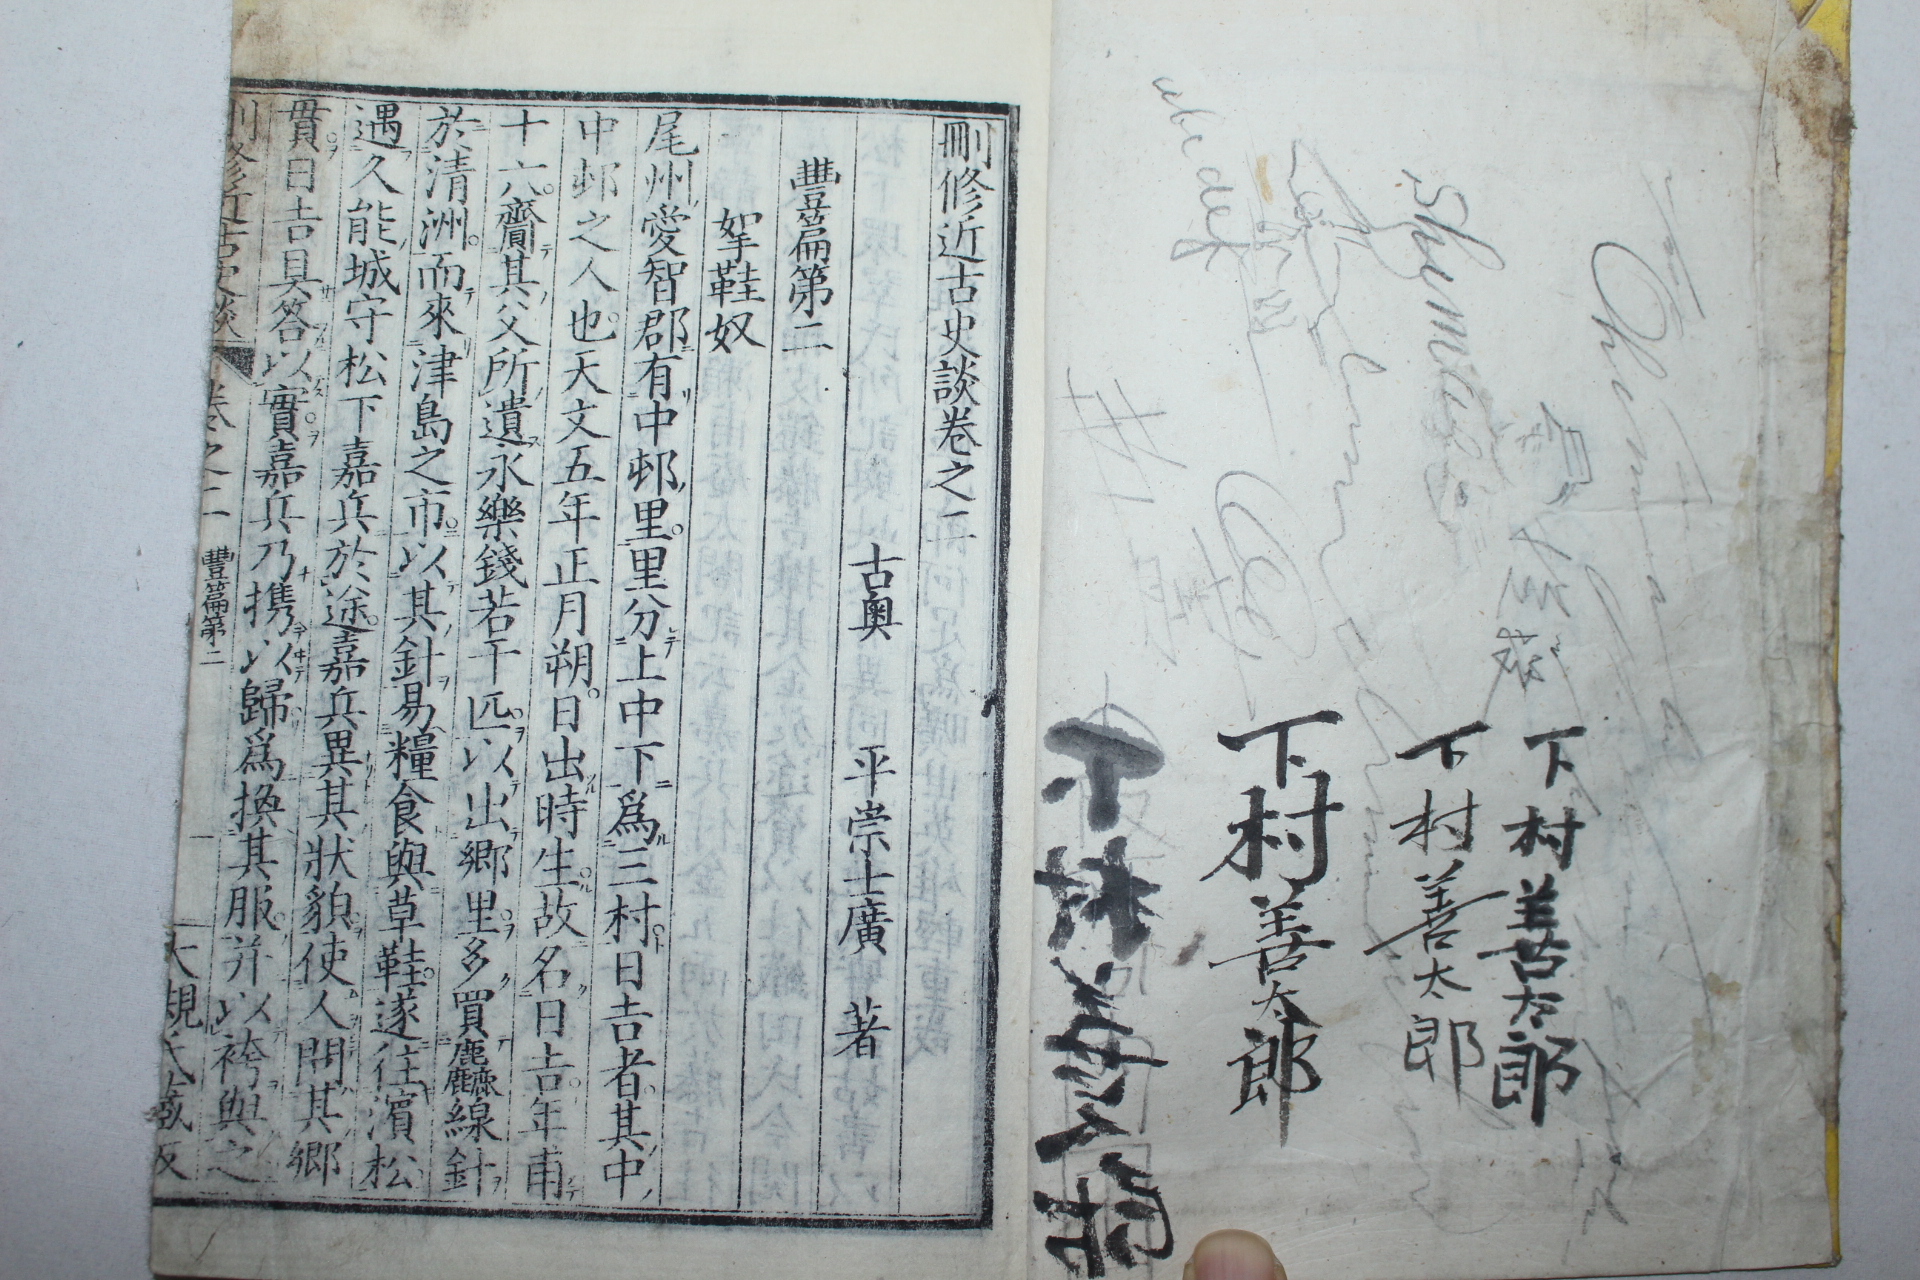 abcdef
Shimura
下村善太郎
下村善太郎
下村善太郎
下村善太郎
刪修近古史談卷之二
古奧 平崇士廣 著
豐篇第二
挐鞋奴
尾州愛智郡有中邨里里分上中下爲三村日吉者其中
中邨之人也天文五年正月朔日出時生故名日吉年甫
十六齎其父所遺永樂錢若干匹以出鄉里多買麤線針
於清洲而來津島之市以其針易糧食與草鞋遂往濱松
遇久能城守松下嘉兵於途嘉兵異其狀貌使人問其鄉
貫日吉具答以實嘉兵乃携以歸爲換其服并以袴與之
刪修近古史談 卷之二 豐篇第二 一 大槻氏藏版